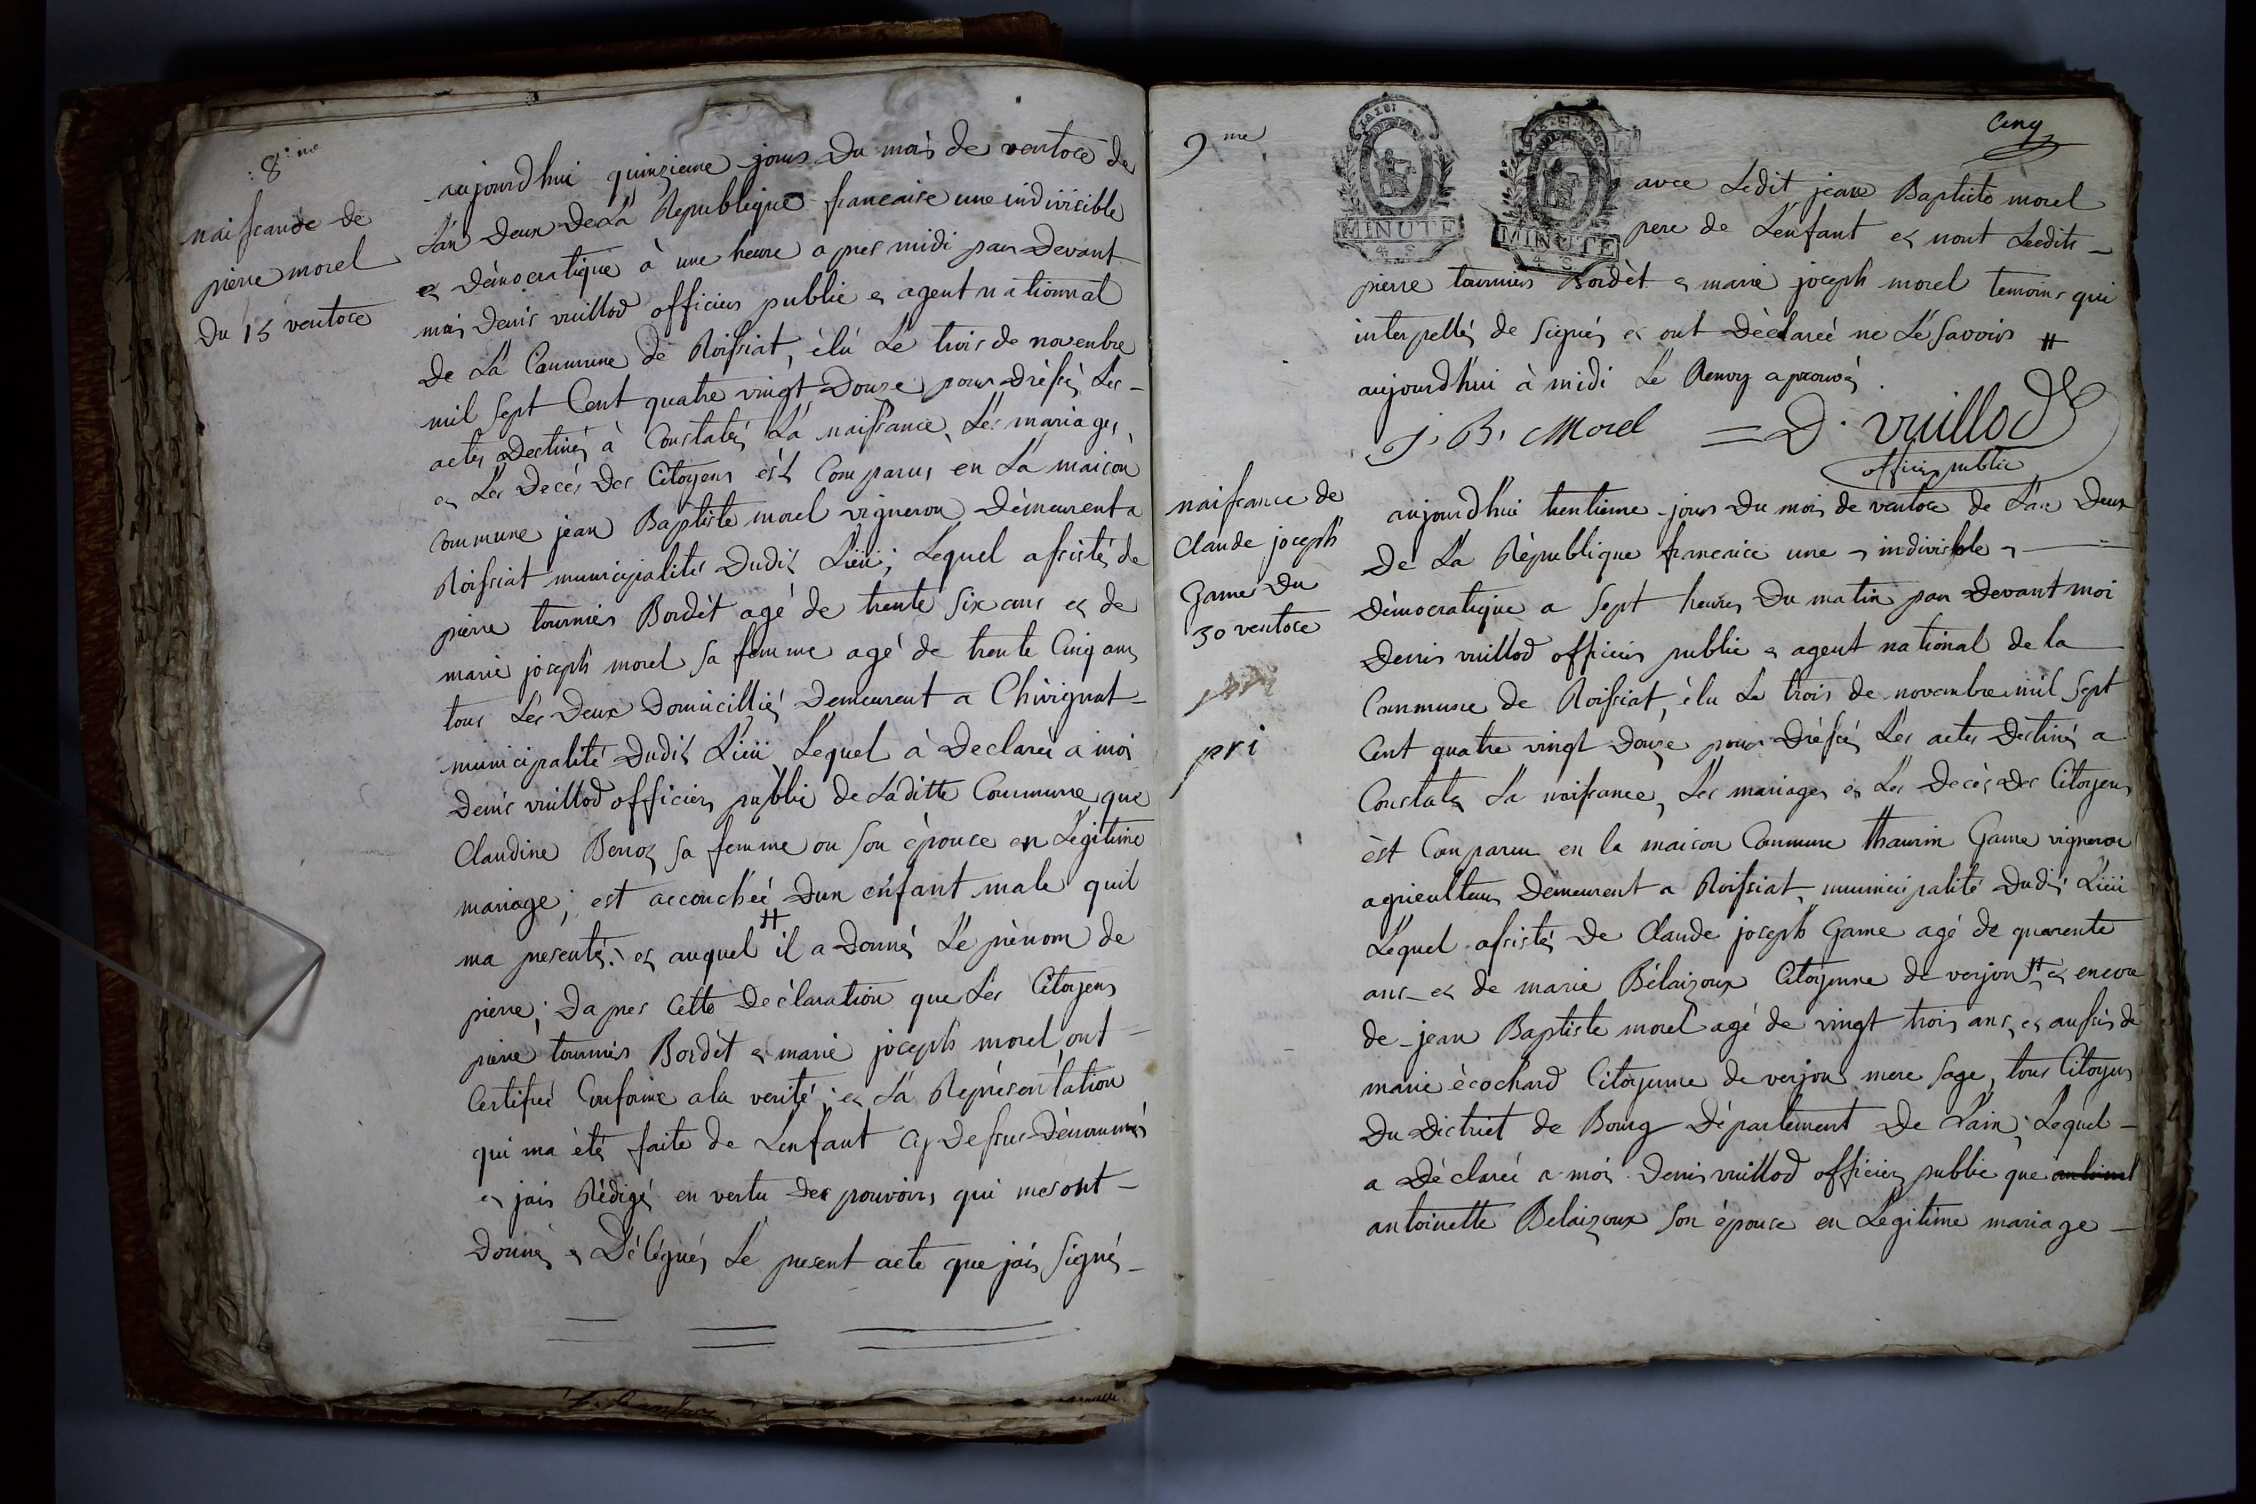 8.me
naissance de
pierre morel
Du 15 ventose
aujourd'hui quinzieme jours Du mois de ventose de
L'an Deux De La Republique francaise une indivisible
et Démocratique à une heure apres midi par Devant
moi Denis vuillod officier public et agent nationnal
De La Commune de Roissiat, èlù Le trois de novenbre
mil sept Cent quatre vingt Douze pour Dréssé Les
actes Destinés à Constatés La naissance, Les mariages,
et Les Decés Des Citoyens est Comparus en La maison
Commune jean Baptiste morel vigneron Démeurent a
Roissiat municipalites Dudit Lieu; Lequel assistés de
pierre tournier Bordèt agé de trente six ans et de
marie joseph morel sa femme agé de trente Cinq ans
tous Les Deux Domicilliés Demeurent a Chivignat
municipalité Dudit Lieu Lequel à Declareé a moi
Denis vuillod officier public de Laditte Commune que
Claudine Beroz sa femme ou son èpouse en Legitime
mariage; est accouchéé D'un enfant male quil
H
ma presentés. et auquel il a Donnés Le prènom de
pierre; Dapres Cette Déclaration que Les Citoyens
pierre tournier Bordèt et marie joseph morel ont
Certifieé Conforme a la verité; et La Représentation
qui ma étés faite de L'enfant Cy Dessus Dénommés
et jais Rédigé en vertu Des pouvoirs qui mesont
Donnés et Délégués Le present acte que jais signés
9me
Cinq
MINUTE
4 S
MINUTE
4 S
avec Ledit jean Baptiste morel
pere de L'enfant et nont Lesdits
pierre tournier Bordèt et marie joseph morel temoins qui
interpellés de signés et ont Déclareé ne Le savoir H
aujourd'hui à midi Le Renvoy aprouvés.
J. B. Morel = D. vuillod
officier public
naissance de
Claude joseph
Game Du
30 ventose
pri
aujourd'hui trentieme jours Du mois de ventose de L'an Deux
De La République francaise une et indivisible et
Démocratique a sept heures Du matin par Devant moi
Denis vuillod officier public et agent national de la
Commune de Roissiat, èlu Le trois de novembre mil sept
Cent quatre vingt Douze pour Dréssés Les actes Destinés a
Constater La naissance, Les mariages et Les Decès Des Citoyens
èst Comparu en la maison Commune thaurin Game vigneron
agriculteur Demeurent a Roissiat, municipalité Dudit Lieu
Lequel assistés De Claude joseph Game agé de quarente
ans et de marie Bélaizoux Citoyenne de verjon H et encore
de jean Baptiste morel agé de vingt trois ans, et aussis de
marie ècochard Citoyenne de verjon mere sage, tous Citoyens
Du District de Bourg Département De L'ain; Lequel
a Déclareé a moi Denis vuillod officier public que
antoinette Belaizoux son épouse en Legitime mariage